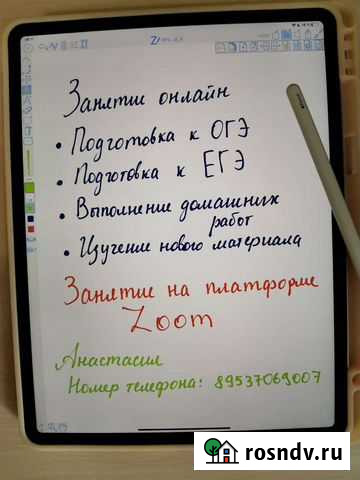 Занятие онлайн
• Подготовка к ОГЭ
• Подготовка к ЕГЭ
• Выполнение домашних
работ
• Изучение нового материала
Занятие на платформе
Zoom
Анастасия
Номер телефона: 89537069007
rosndv.ru